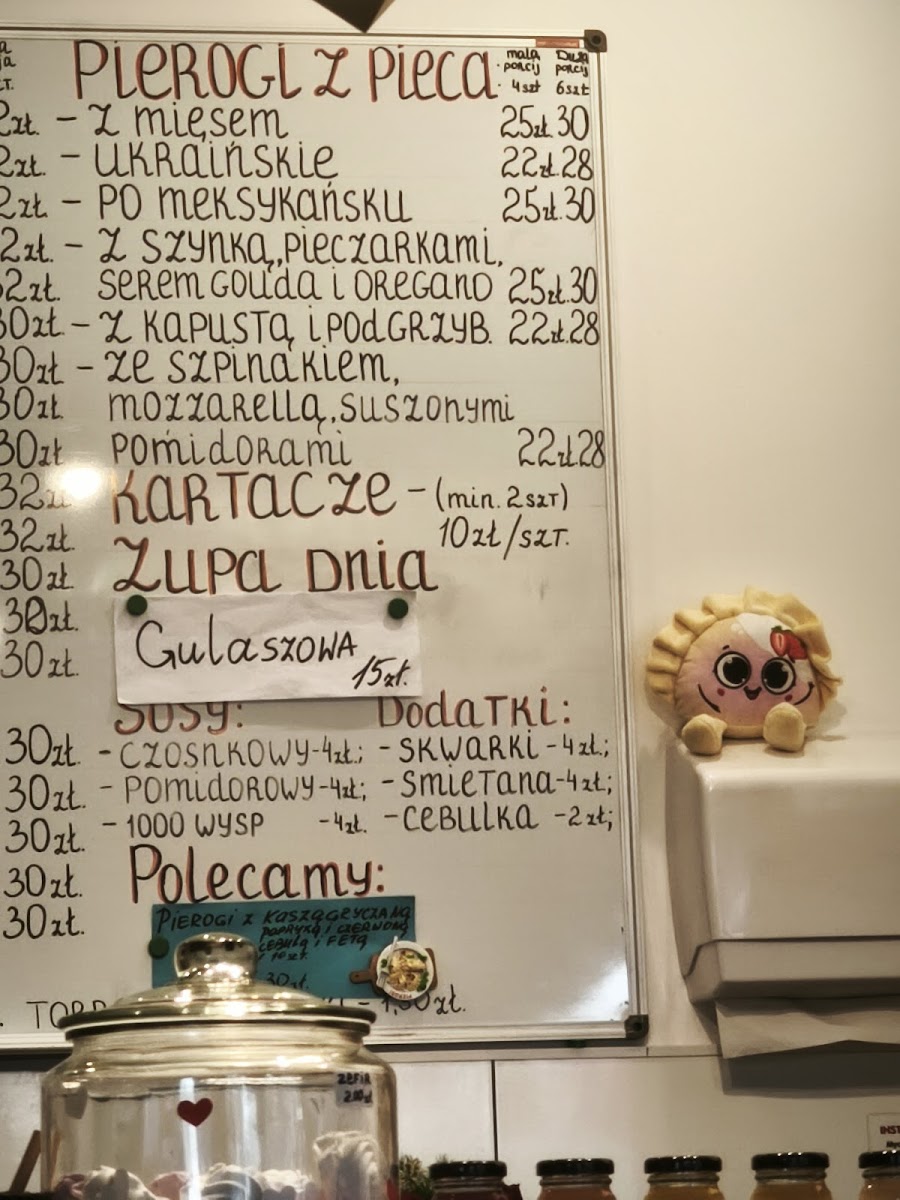 PIEROGI Z PIECA
mała porcij 4szt
Duża porcij 6szt
2zł. - Z MIĘSEM 25zł. 30
2zł. - UKRAIŃSKIE 22zł. 28
2zł. - PO MEKSYKAŃSKU 25zł. 30
2zł. - Z SZYNKĄ, PIECZARKAMI,
2zł. SEREM GOUDA I OREGANO 25zł. 30
30zł. - Z KAPUSTĄ I PODGRZYB. 22zł. 28
30zł - ZE SZPINAKIEM,
30zł MOZZARELLĄ, SUSZONYMI
30zł POMIDORAMI 22zł. 28
32zł KARTACZE - (min. 2szt)
32zł. 10zł/szt.
30zł ZUPA DNIA
30zł. GULASZOWA
30zł. 15zł.
SOSY: DODATKI:
30zł. - CZOSNKOWY - 4zł.; - SKWARKI - 4zł.;
30zł. - POMIDOROWY - 4zł; - ŚMIETANA - 4zł;
30zł. - 1000 WYSP - 4zł. - CEBULKA - 2zł;
30zł. Polecamy:
30zł. PIEROGI Z KASZĄ GRYCZANĄ
PAPRYKĄ I CZERWONĄ
CEBULĄ I FETĄ
10szt.
30zł.
1,50zł.
ZEFIR
INST